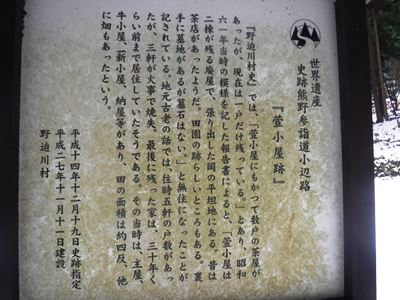 世界遺産
史跡熊野参詣道小辺路
『萱小屋跡』
『野迫川村史』では、「萱小屋にもかつて数戸の茶屋が
あったが、現在は一戸だけ残っている。」とあり、昭和
六一年当時の模様を記した報告書によると、「萱小屋は
二棟が残る廃屋で、張り出した岡の平坦地にある。昔は
茶店があったようだ。田圃の跡らしいところもある。裏
手に墓地があるが墓石はない。」と無住になったことが
記されている。地元古老の話では、往時五軒の戸数があっ
たが、三軒が火事で焼失、最後に残った家は、三十年く
らい前まで居住していたそうである。その当時は、主屋、
牛小屋、薪小屋、納屋等があり、田の面積は約四反、他
に畑もあったという。
平成十四年十二月十九日史跡指定
平成二七年十一月十一日建設
野迫川村